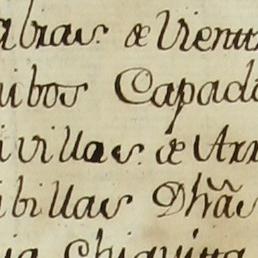 abras. de Vientr
uibos Capado
ivillas. de Arr
ibillas Dhãs
ia Chiquitta